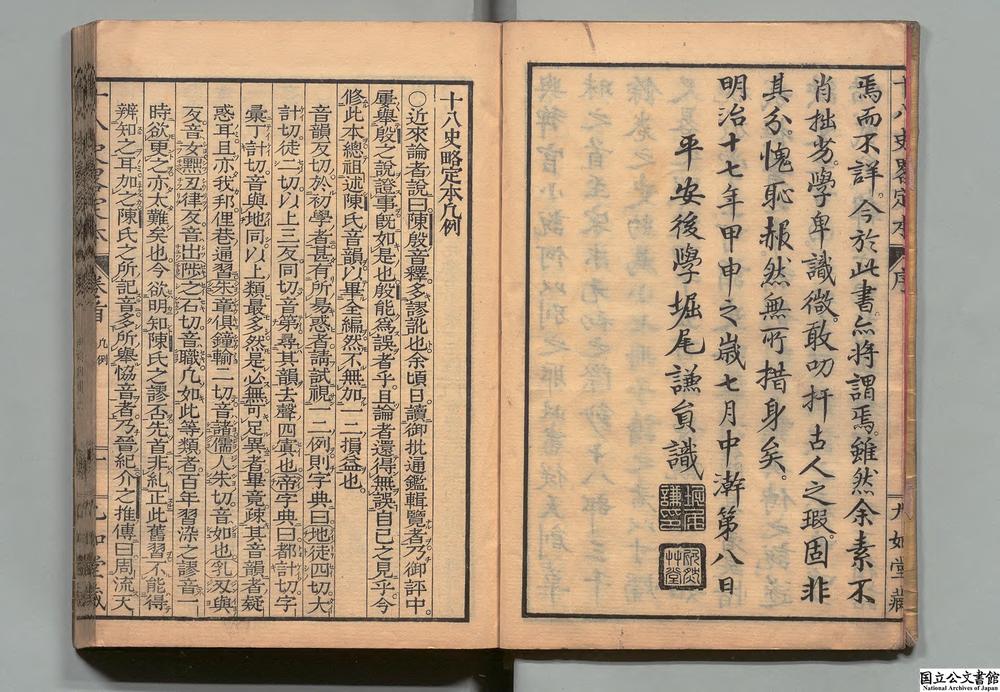 焉而不詳。今於此書亦將謂焉。雖然余素不
肖拙劣。學卑識微。敢叨扞古人之瑕。固非
其分。愧恥赧然無所措身矣。
明治十七年甲申之歲七月中澣第八日
平安後學堀尾謙貞識
十八史略定本 序 九如堂藏
十八史略定本凡例
○近來論者說曰陳殷音釋。多謬訛也余頃日讀御批通鑑輯覽者乃御評中。
屢舉殷之說證事旣如是也殷能爲誤者乎。且論者還得無誤自己之見乎今
修此本總祖述陳氏音韻以畢全編然不無加一二損益也。
音韻反切於初學者甚有所易惑者請試視一二例則字典曰地徒四切大
計切徒二切以上三反同切音第尋其韻去聲四寘也帝字典曰都計切字
彙丁計切音與地同以上類最多然是必無可足異者畢竟疎其音韻者疑
惑耳且亦我邦俚巷通習朱章俱鐘輸二切音諸儒人朱切。音如也乳反與
反音女熙丑律反音出陟之石切音職凡如此等類者百年習染之謬音一
時欲更之亦太難矣也今欲明知陳氏之謬否先首非糺正此舊習不能得
辨知之耳加之陳氏之所記音多所舉恊音者乃晉紀介之推傳曰周流天
十八史略定本 卷首 凡例 一 九如堂藏
国立公文書館
National Archives of Japan